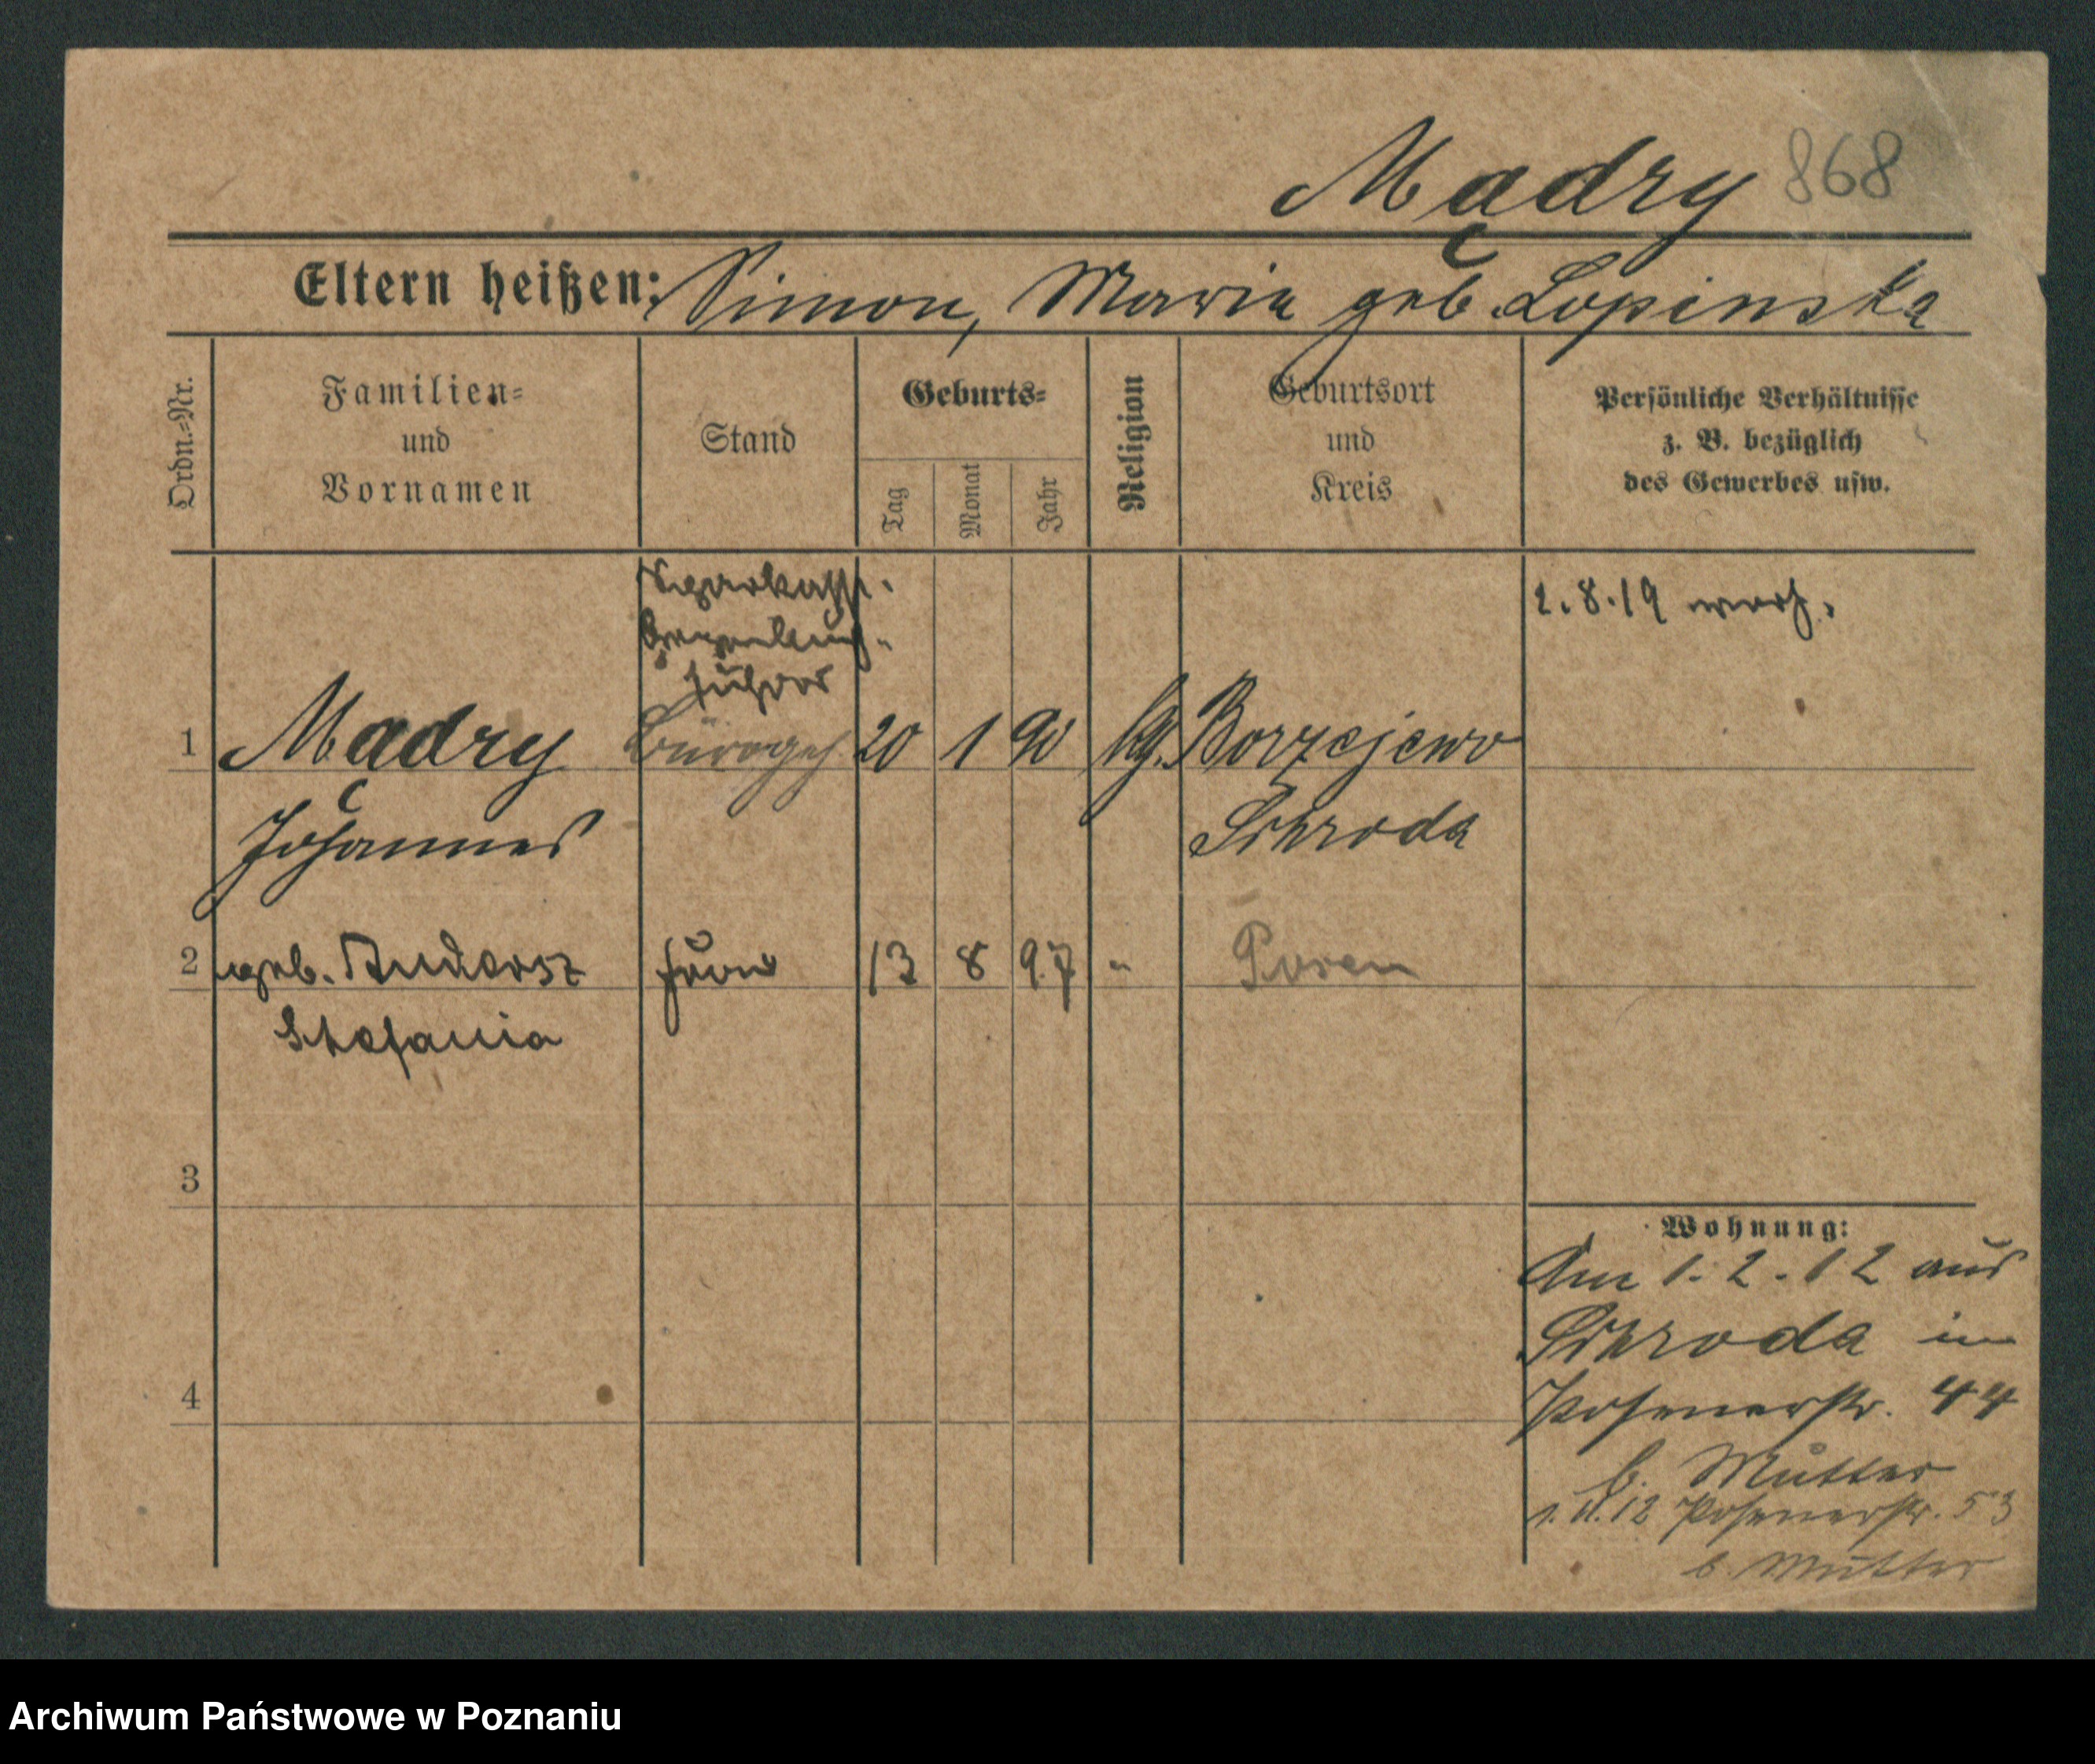 Mądry 868
Eltern heißen: Simon, Maria geb. Lopinska
Ordn.-Nr.
Familien-
und
Vornamen
Stand
Geburts-
Tag
Monat
Jahr
Religion
Geburtsort
und
Kreis
Persönliche Verhältnisse
z. B. bezüglich
des Gewerbes usw.
Sparkass.
führer
2.8.19 verh.
1 Mądry Bürogeh. 20 1 90 kg. Borzejewo
Johannes Schroda
2 geb. Andersz Frau 13 8 97 " Posen
Stefania
3
Wohnung:
Am 1.2.12 aus
Schroda in
4 Posenerstr. 44
b. Mutter
1.11.12 Posenerstr. 53
b. Mutter
Archiwum Państwowe w Poznaniu